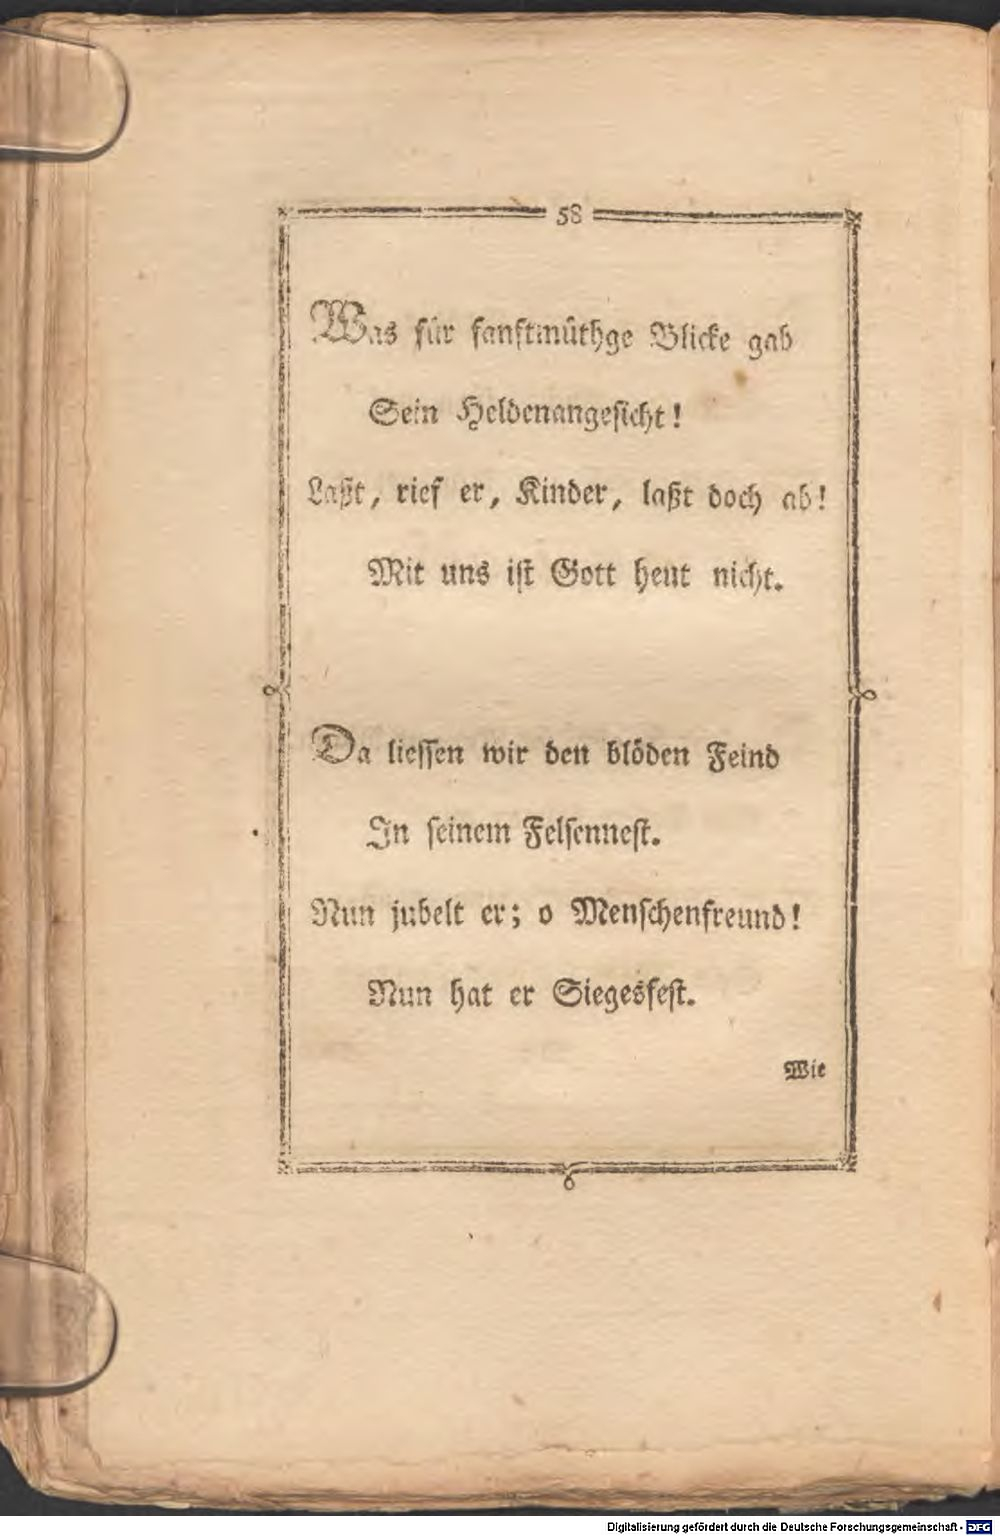 58
Was für sanftmüthge Blicke gab
Sein Heldenangesicht!
Laßt, rief er, Kinder, laßt doch ab!
Mit uns ist Gott heut nicht.
Da liessen wir den blöden Feind
In seinem Felsennest.
Nun jubelt er; o Menschenfreund!
Nun hat er Siegesfest.
Wie
Digitalisierung gefördert durch die Deutsche Forschungsgemeinschaft - DFG